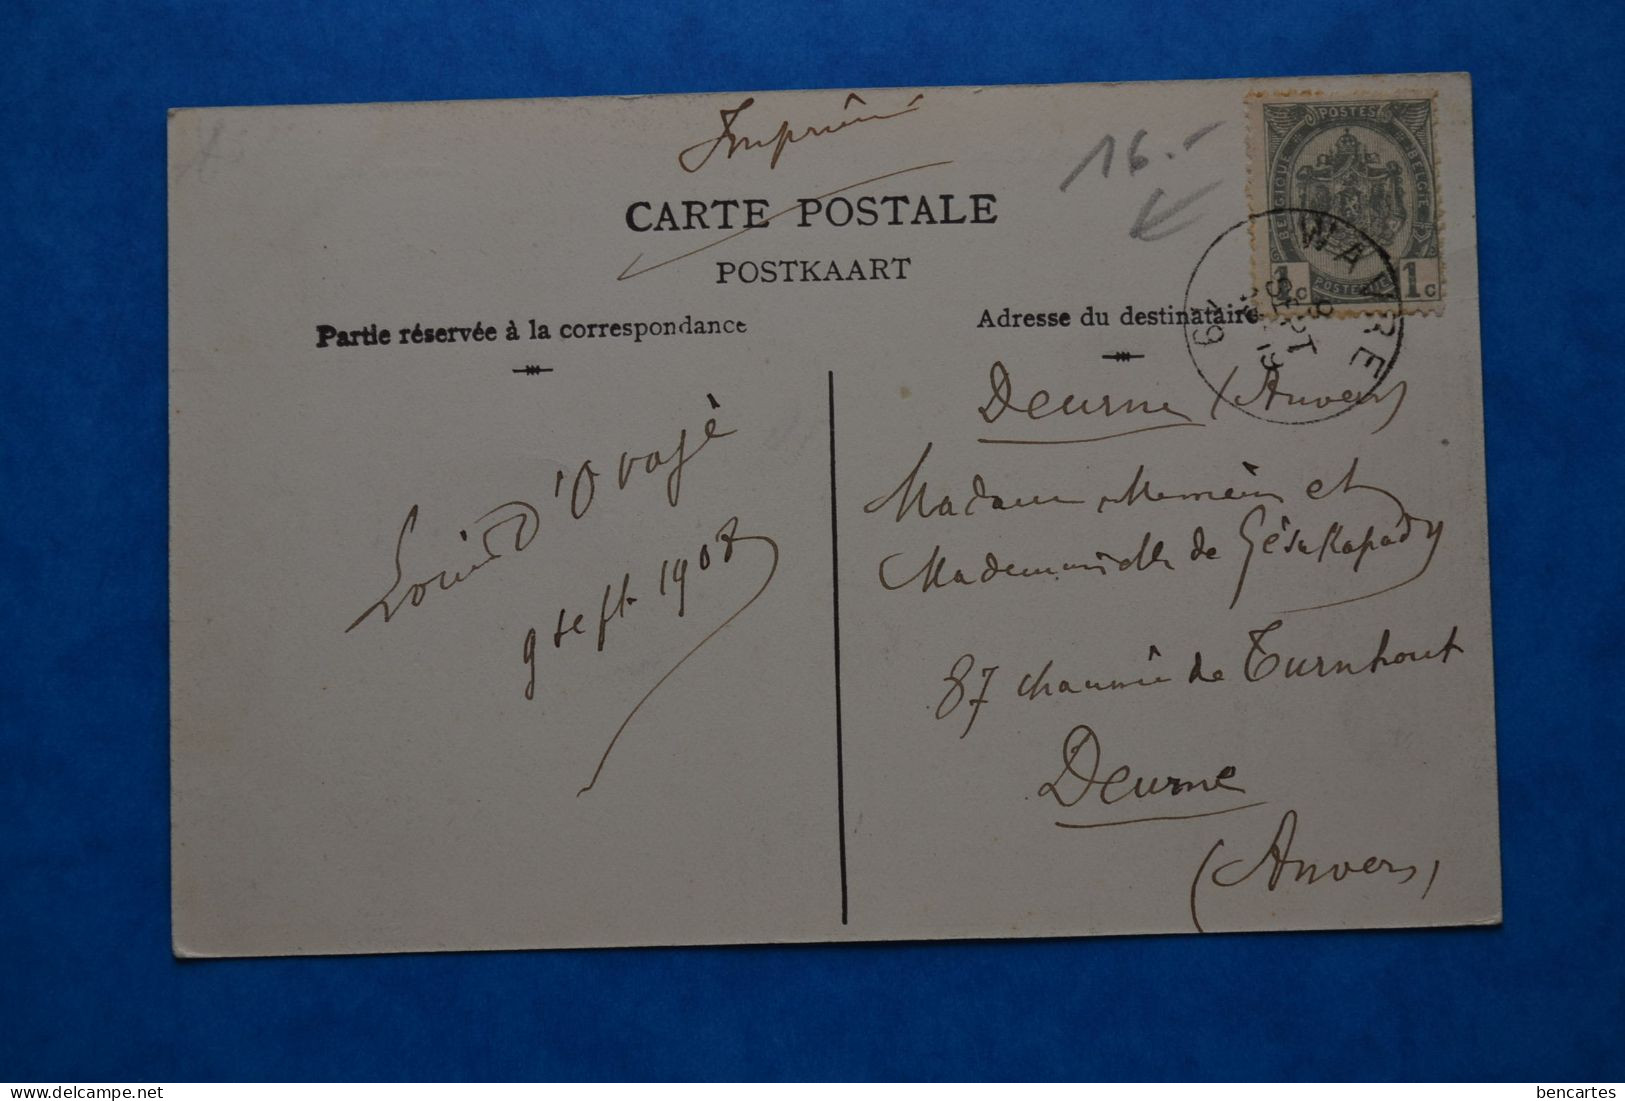 Imprimé
16.-
CARTE POSTALE
POSTKAART
Partie réservée à la correspondance
Adresse du destinataire
POSTES
BELGIQUE
BELGIË
POSTERIJEN
1c
1c
WAVRE
SEPT
19
Deurne (Anvers)
Madame et
Mademoiselle de
87 chaussée de Turnhout
Deurne
(Anvers)
Louis
9 sept. 1908
bencartes